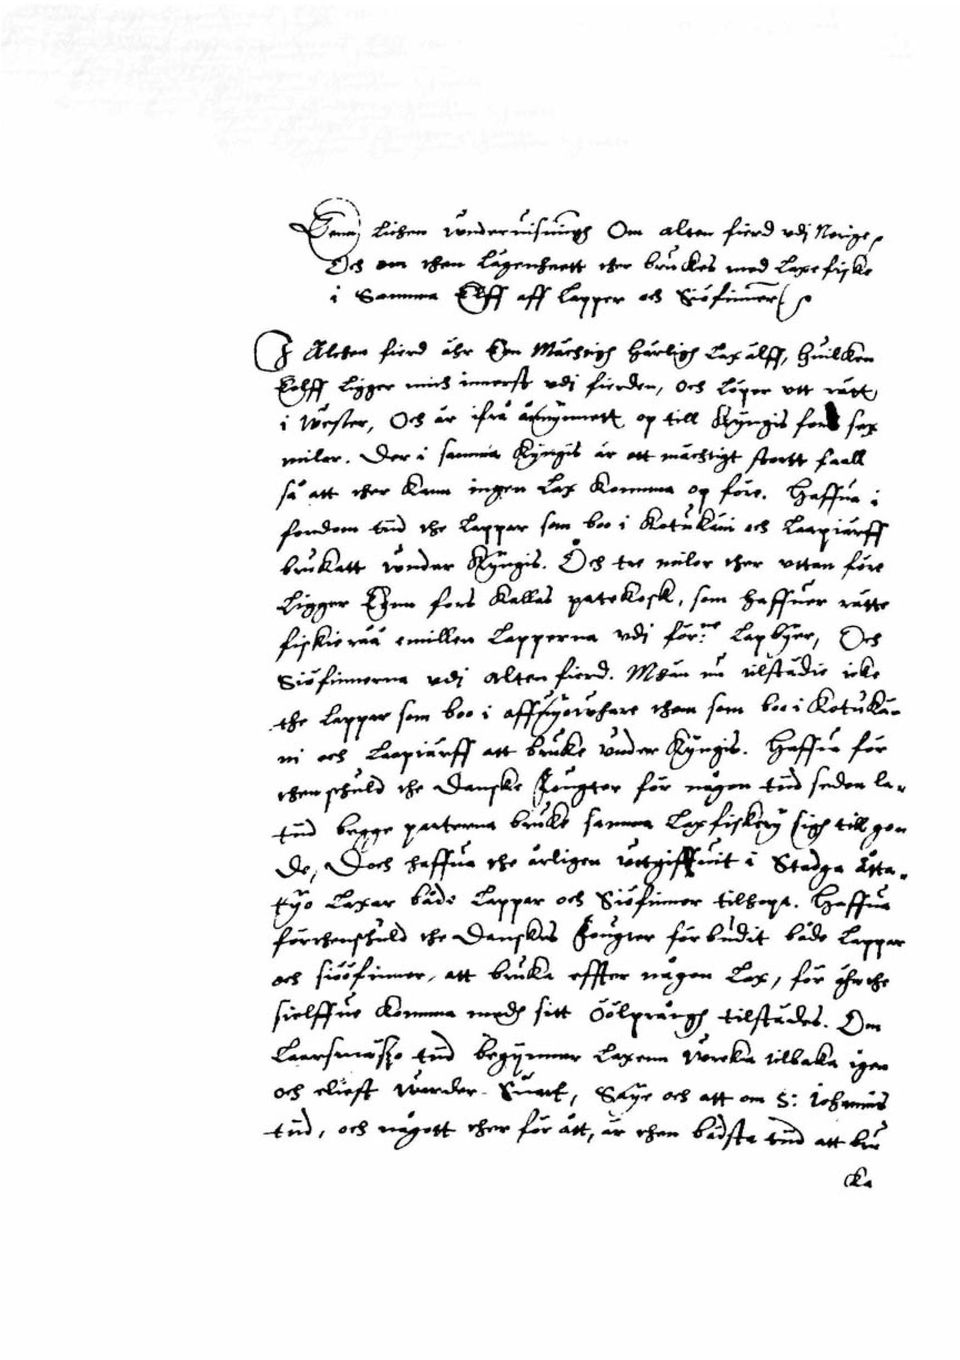 Een liten underuisningh Om alten fierd udj Norige,
Och om then lägenheett ther brukes med Laxefiske
i Samma Elff aff Lapper och Siöfinner
I Alten fierd ähr Een Mächtigh härligh Laxälff, huilcken
Eelff ligger mich innerst udj fierden, och löper utt rätt
i Wester, Och är ifrå åmynnett op till Kyngis fors sex
milar. Der i samma Kyngis är ett mächtigt stortt faall
så att ther kann ingen Lax komma op före. Haffua i
fordom tiid the Lappar som boo i Kotukäin och Laapiärff
brukatt under Kyngis. Och tre milar ther uttan före
Ligger Een fors kallas patekosk, som haffuer rätte
fiskieråå emillen Lapperna udj för:ne Lapbyer, Och
Siöfinnerna udj alten fierd. Män nu tilstädie icke
the Lappar som boo i affuyowhare them som boo i Kotukäi-
ni och Laapiärff att bruke under Kyngis. Haffua för
thenschuld the Danske Fougter för någon tiid seden la-
tiid begge parterna bruke samma Laxfiskery sigh till gon
de, Doch haffua the årligen uttgiffuit i Stadga Åtta-
tyo Laxar både Lappar och Siöfinner tilhopa. Haffua
förthenschuld the Danskes Fougter förbudit både Lappar
och siööfinner, att bruka effter någon Lax, för ähn the
sielffue komma medh sitt Öölprångh tilstädes. Om
Laarsmäszo tiid begynnar Laxenn wreka tilbaka igen
och eliest warder Suart, Säye och att om S: Iohannis
tiid, och någott ther för ått, är then bädsta tiid att bru
ka